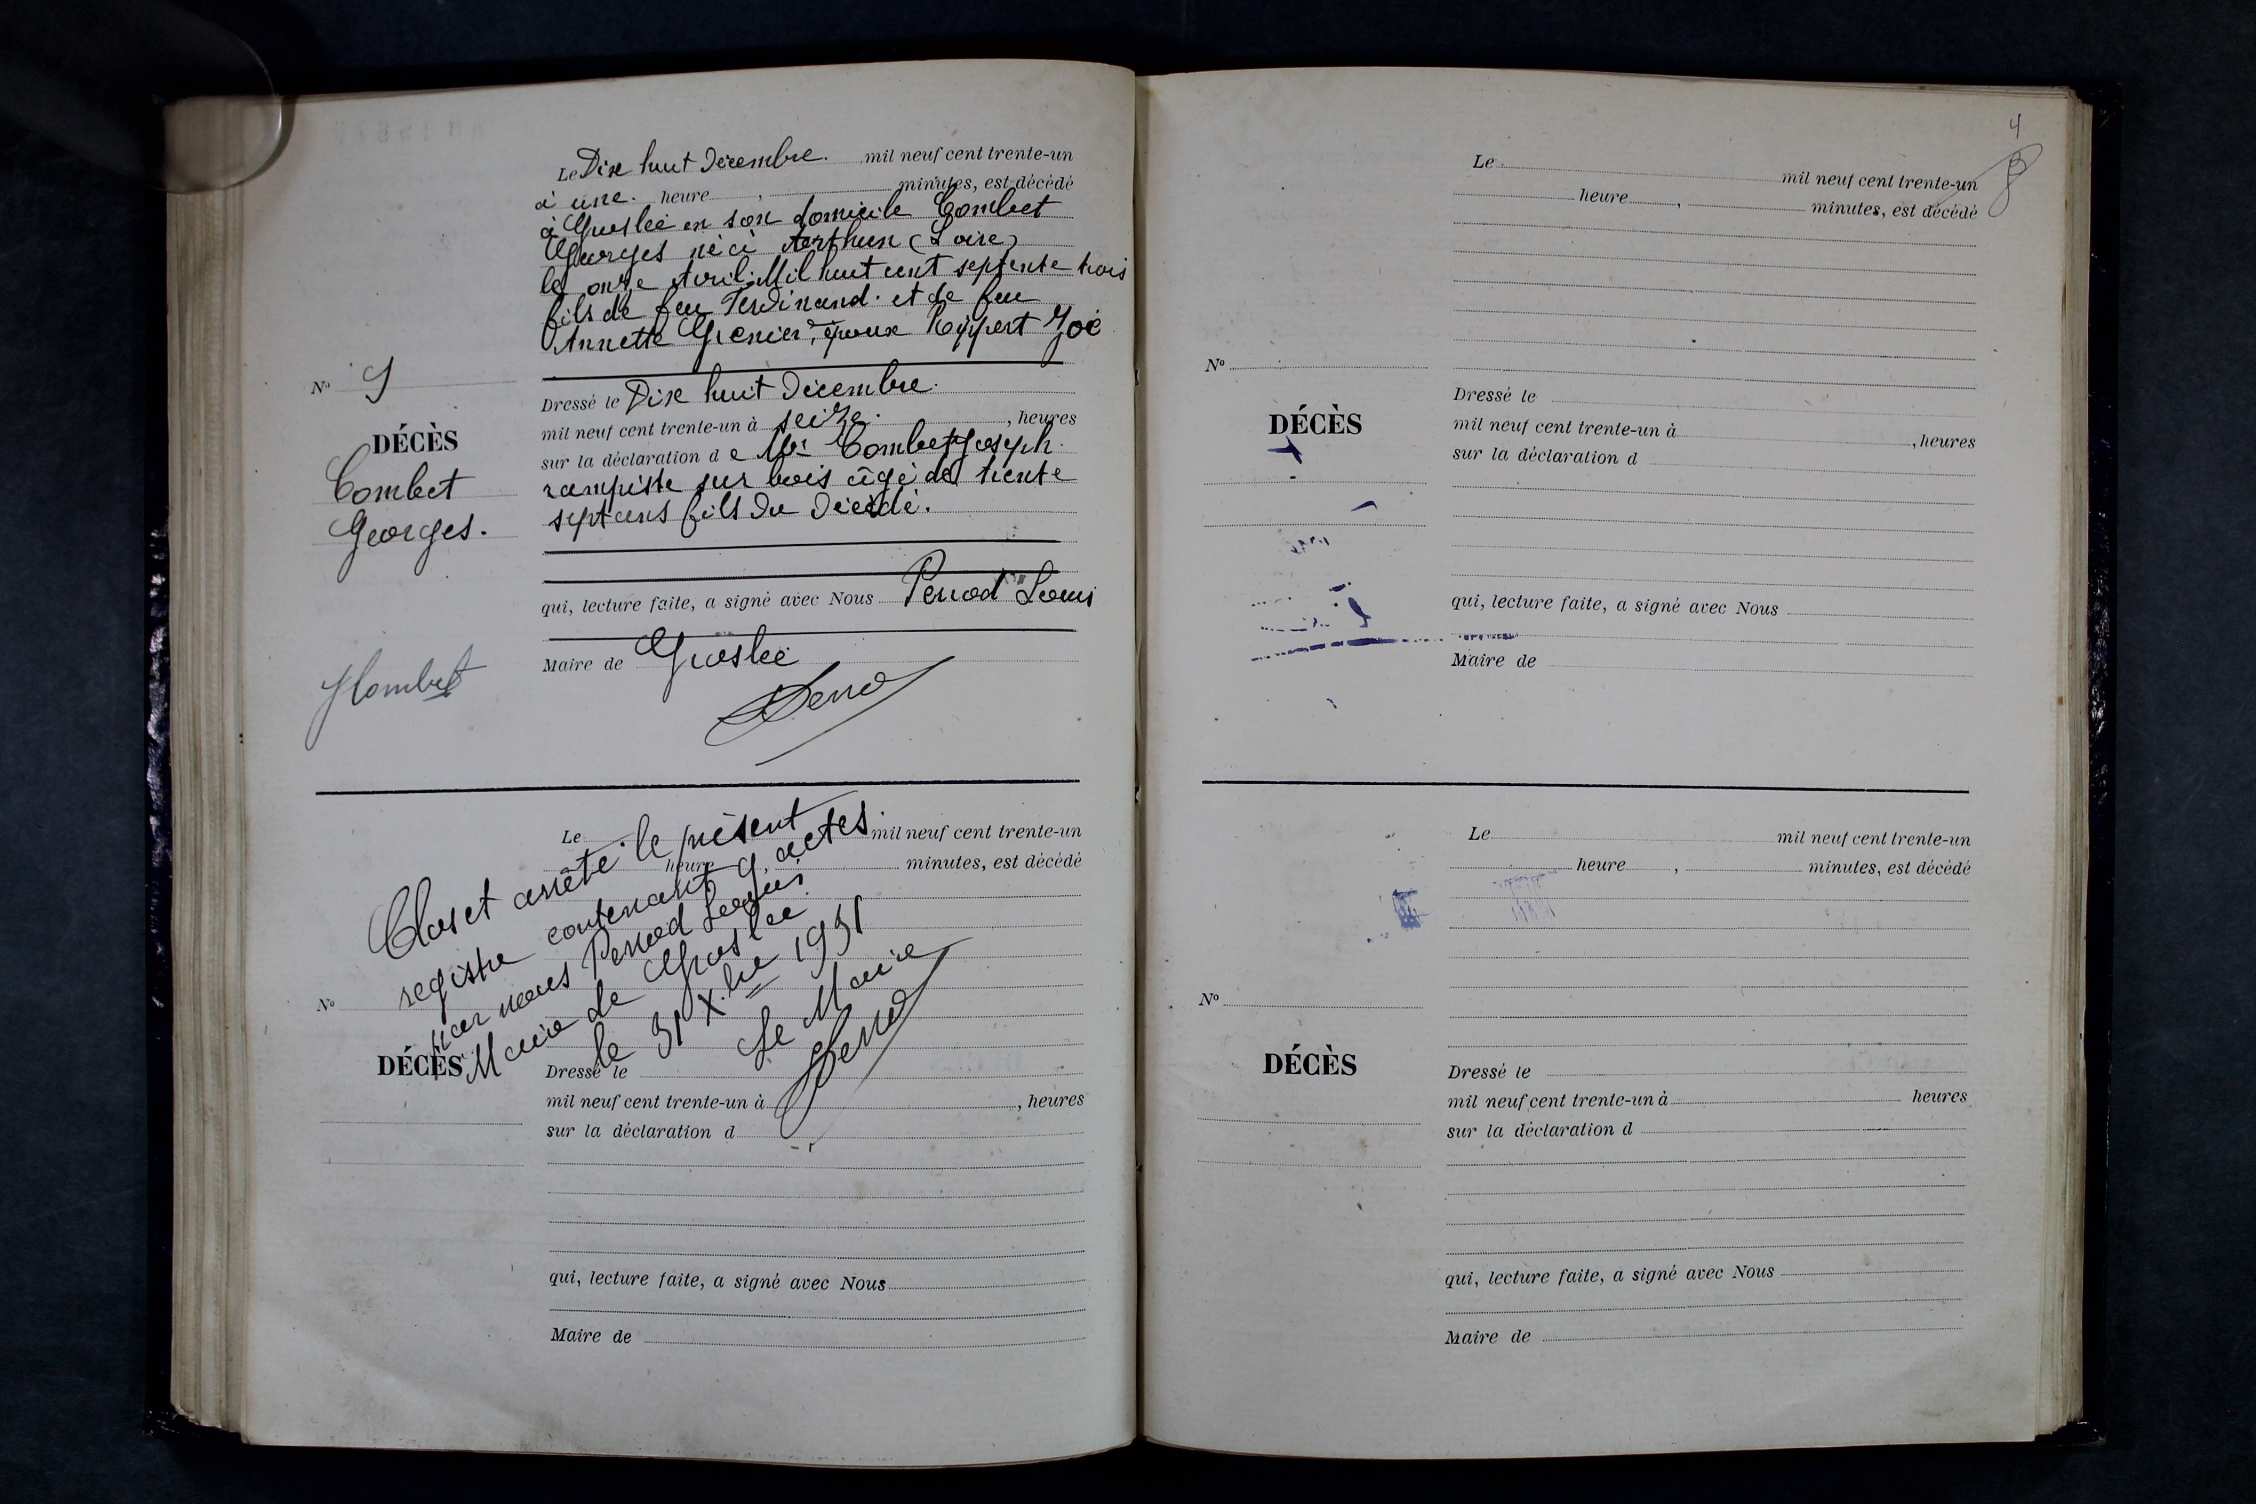 Le Dix huit Décembre. mil neuf cent trente-un
à une. heure , minutes, est décédé
à Groslée en son domicile Combet
Georges né à Arthun (Loire)
le onze Avril Mil huit cent septente trois
fils de feu Ferdinand. et de feu
Annette Grenier, époux Zoé
No 9
DÉCÈS
Combet
Georges.
Dressé le Dix huit Décembre.
mil neuf cent trente-un à seize. , heures
sur la déclaration d e Mr Combet Joseph.
rampiste sur bois âgé de trente
sept ans fils du Décédé.
qui, lecture faite, a signé avec Nous Perrod Louis
Maire de Groslée
JCombet
Perrod
Le mil neuf cent trente-un
heure minutes, est décédé
Clos et arrêté le présent
registre contenant 9 actes
par nous Perrod Louis
Maire de Groslée
le 31 Xbre 1931
Le Maire
Perrod
No
DÉCÈS
Dressé le
mil neuf cent trente-un à , heures
sur la déclaration d
qui, lecture faite, a signé avec Nous
Maire de
4
Le mil neuf cent trente-un
heure , minutes, est décédé
No
DÉCÈS
Dressé le
mil neuf cent trente-un à , heures
sur la déclaration d
qui, lecture faite, a signé avec Nous
Maire de
Le mil neuf cent trente-un
heure , minutes, est décédé
No
DÉCÈS
Dressé le
mil neuf cent trente-un à heures
sur la déclaration d
qui, lecture faite, a signé avec Nous
Maire de